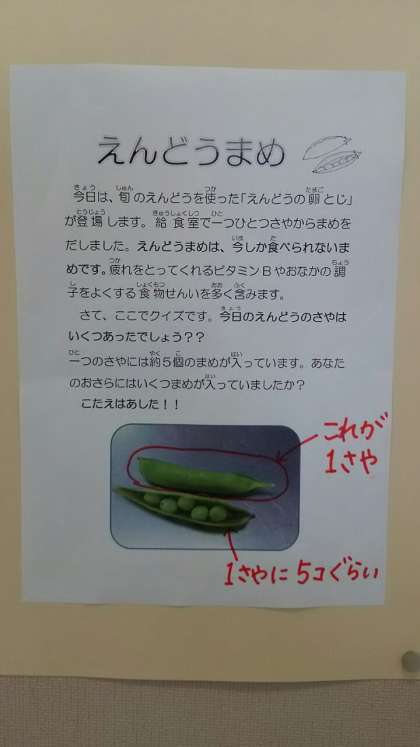 えんどうまめ
今日は、旬のえんどうを使った「えんどうの卵とじ」
が登場します。給食室で一つひとつさやからまめを
だしました。えんどうまめは、今しか食べられないま
めです。疲れをとってくれるビタミンBやおなかの調
子をよくする食物せんいを多く含みます。
さて、ここでクイズです。今日のえんどうのさやは
いくつあったでしょう？？
一つのさやには約5個のまめが入っています。あなた
のおさらにはいくつまめが入っていましたか？
こたえはあした！！
これが
1さや
1さやに5コぐらい